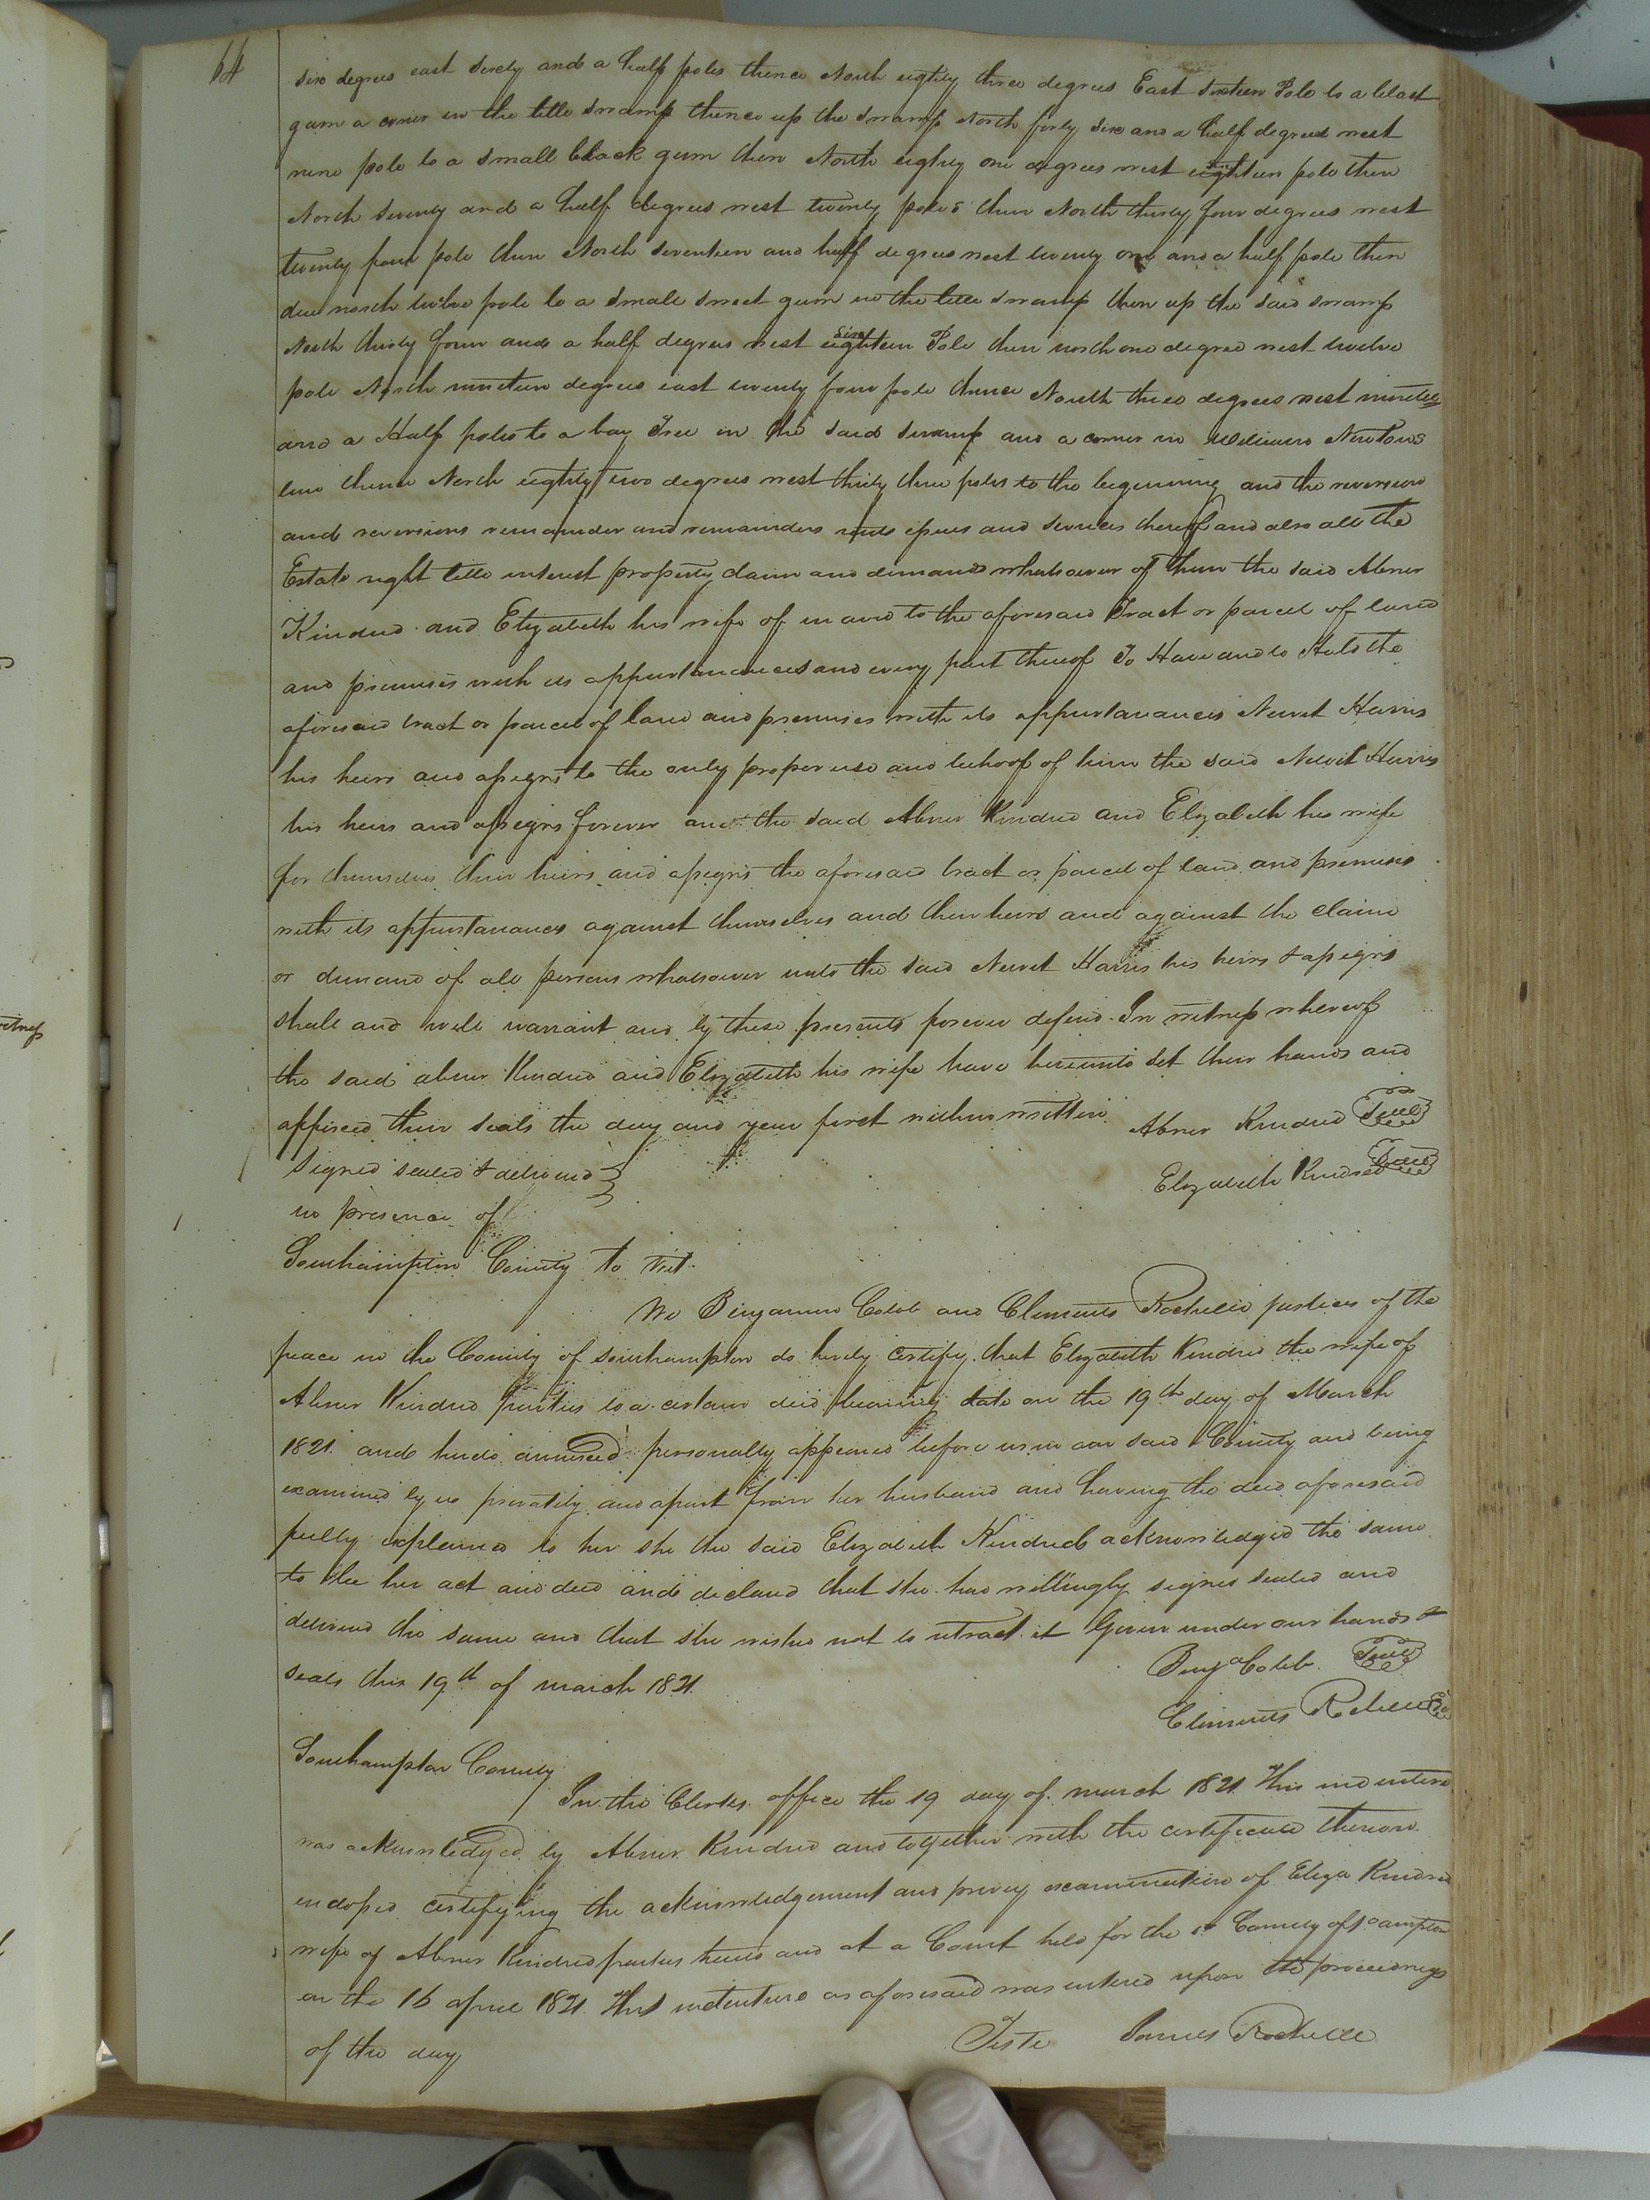 64
six degrees east sixty and a half poles thence North eighty three degrees East sixteen Pole to a black
gum a corner in the little swamp thence up the swamp North forty six and a half degrees west
nine pole to a small black gum then North eighty one degrees west eighteen pole then
North seventy and a half degrees west twenty poles then North thirty four degrees west
twenty four pole then North seventeen and half degrees west twenty one and a half pole then
due north twelve pole to a small sweet gum in the little swamp then up the said swamp
North thirty four and a half degrees west eighteen six Pole then north one degree west twelve
pole North nineteen degrees east twenty four pole thence North three degrees west nineteen
and a Half poles to a bay Tree in the said swamp and a corner in Williams Newtons
line thence North eighty two degrees west thirty three poles to the beginning and the reversion
and reversions remainder and remainders rents issues and services thereof and also all the
Estate right title interest property claim and demand whatsoever of them the said Abner
Kindred and Elizabeth his wife of in and to the aforesaid Tract or parcel of land
and premises with its appurtanances and every part thereof To Have and to Hold the
aforesaid tract or parcel of land and premises with its appurtanances Newit Harris
his heirs and assigns to the only proper use and behoof of him the said Newit Harris
his heirs and assigns forever and the said Abner Kindred and Elizabeth his wife
for themselves their heirs and assigns the aforesaid tract or parcel of land and premises
with its appurtanances against themselves and their heirs and against the claim
or demand of all persons whatsoever unto the said Newit Harris his heirs & assigns
shall and will warrant and by these presents forever defend. In witness whereof
the said abner Kindred and Elizabeth his wife have hereunto set their hands and
affixed their seals the day and year first within written. Abner Kindred Seal
Signed sealed & delivered
Elizabeth Kindred Seal
in presence of
Southampton County to wit.
We Benjamin Cobb and Clements Rochelle justices of the
peace in the County of Southampton do hereby certify that Elizabeth Kindred the wife of
Abner Kindred parties to a certain deed bearing date on the 19th day of March
1821. and hereto annexed personally appeared before us in our said County and being
examined by us privately and apart from her husband and having the deed aforesaid
fully explained to her she the said Elizabeth Kindred acknowledged the same
to be her act and deed and declared that she had willingly signed sealed and
delivered the same and that she wished not to retract it Given under our hands &
seals this 19th of march 1821.
Benja Cobb. Seal
Clements Rochelle
Southampton County
In the Clerks office the 19 day of march 1821 This indenture
was acknowledged by Abner Kindred and together with the certificate thereon
endorsed certifying the acknowledgement and privey examination of Eliza Kindred
wife of Abner Kindred parties hereto and at a Court held for the sd County of Soampton
on the 16 april 1821. This indenture as aforesaid was entered upon the proceedings
of the day
Teste James Rochelle